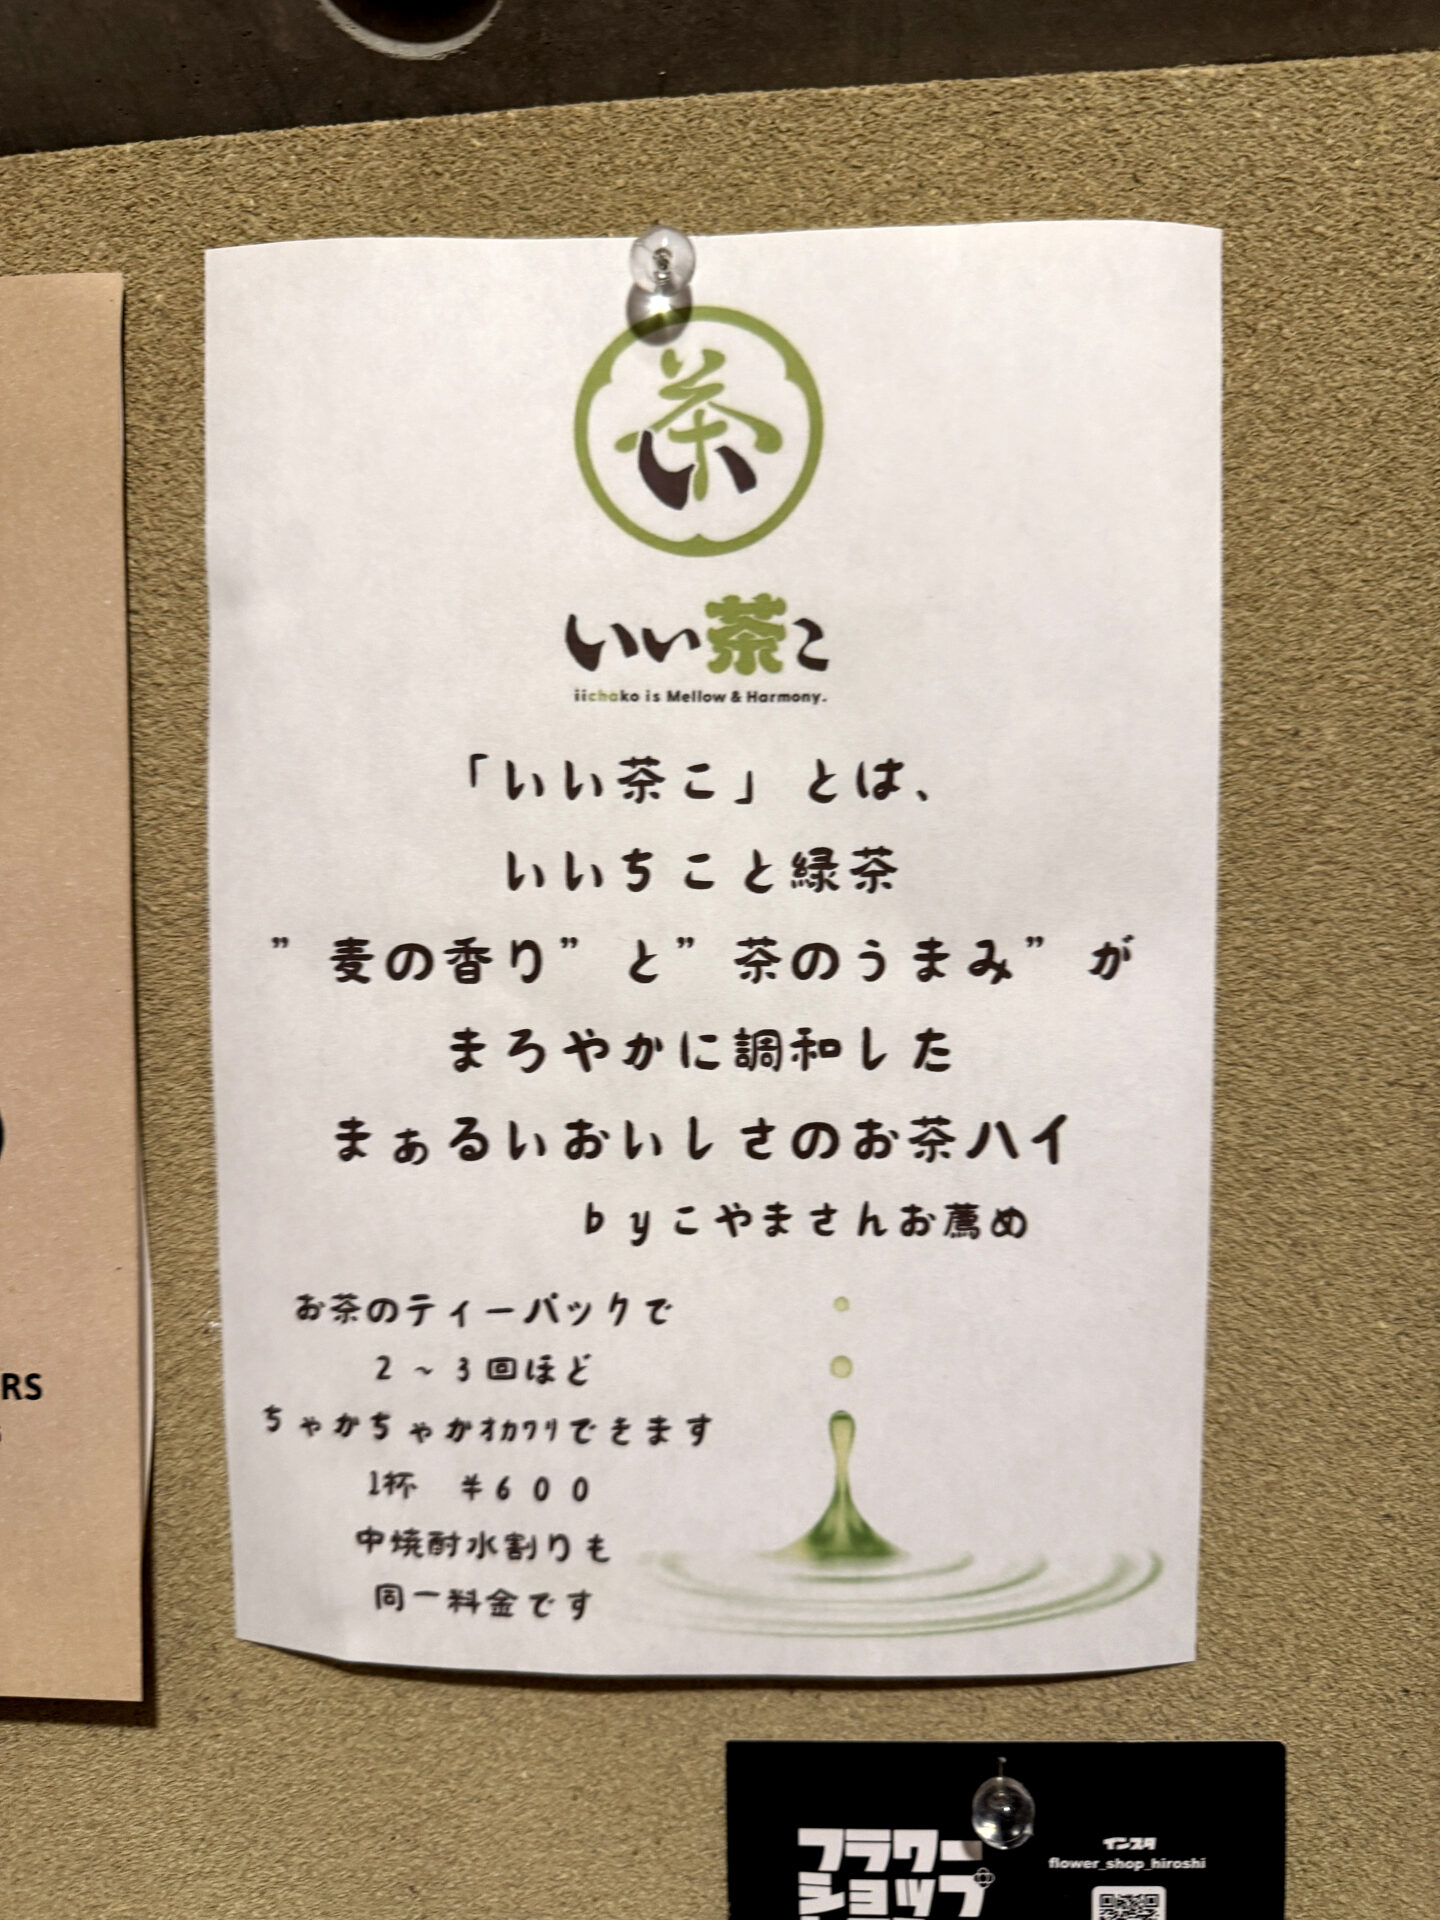 茶い
いい茶こ
iichako is Mellow & Harmony.
「いい茶こ」とは、
いいちこと緑茶
”麦の香り”と”茶のうまみ”が
まろやかに調和した
まぁるいおいしさのお茶ハイ
byこやまさんお薦め
お茶のティーバックで
2～3回ほど
ちゃかちゃかｵｶﾜﾘできます
1杯　¥600
中焼酎水割りも
同一料金です
RS
フラワー
ショップ
インスタ
flower_shop_hiroshi